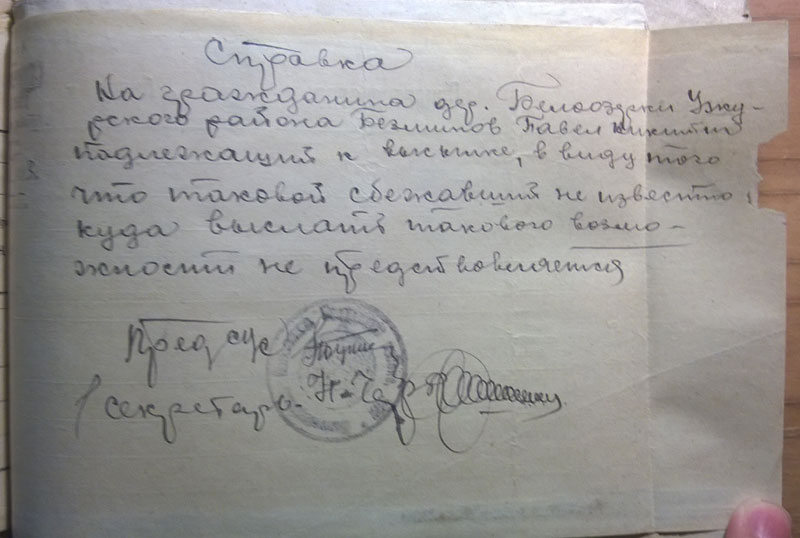 Справка
На гражданина дер. Белоозерки Ужу-
рского района Безлипов Павел Никити
подлежащий к высылке, в виду того
что таковой сбежавший не известно
куда выслать такового возмо-
жности не предствовляется
Предс
Секретарь